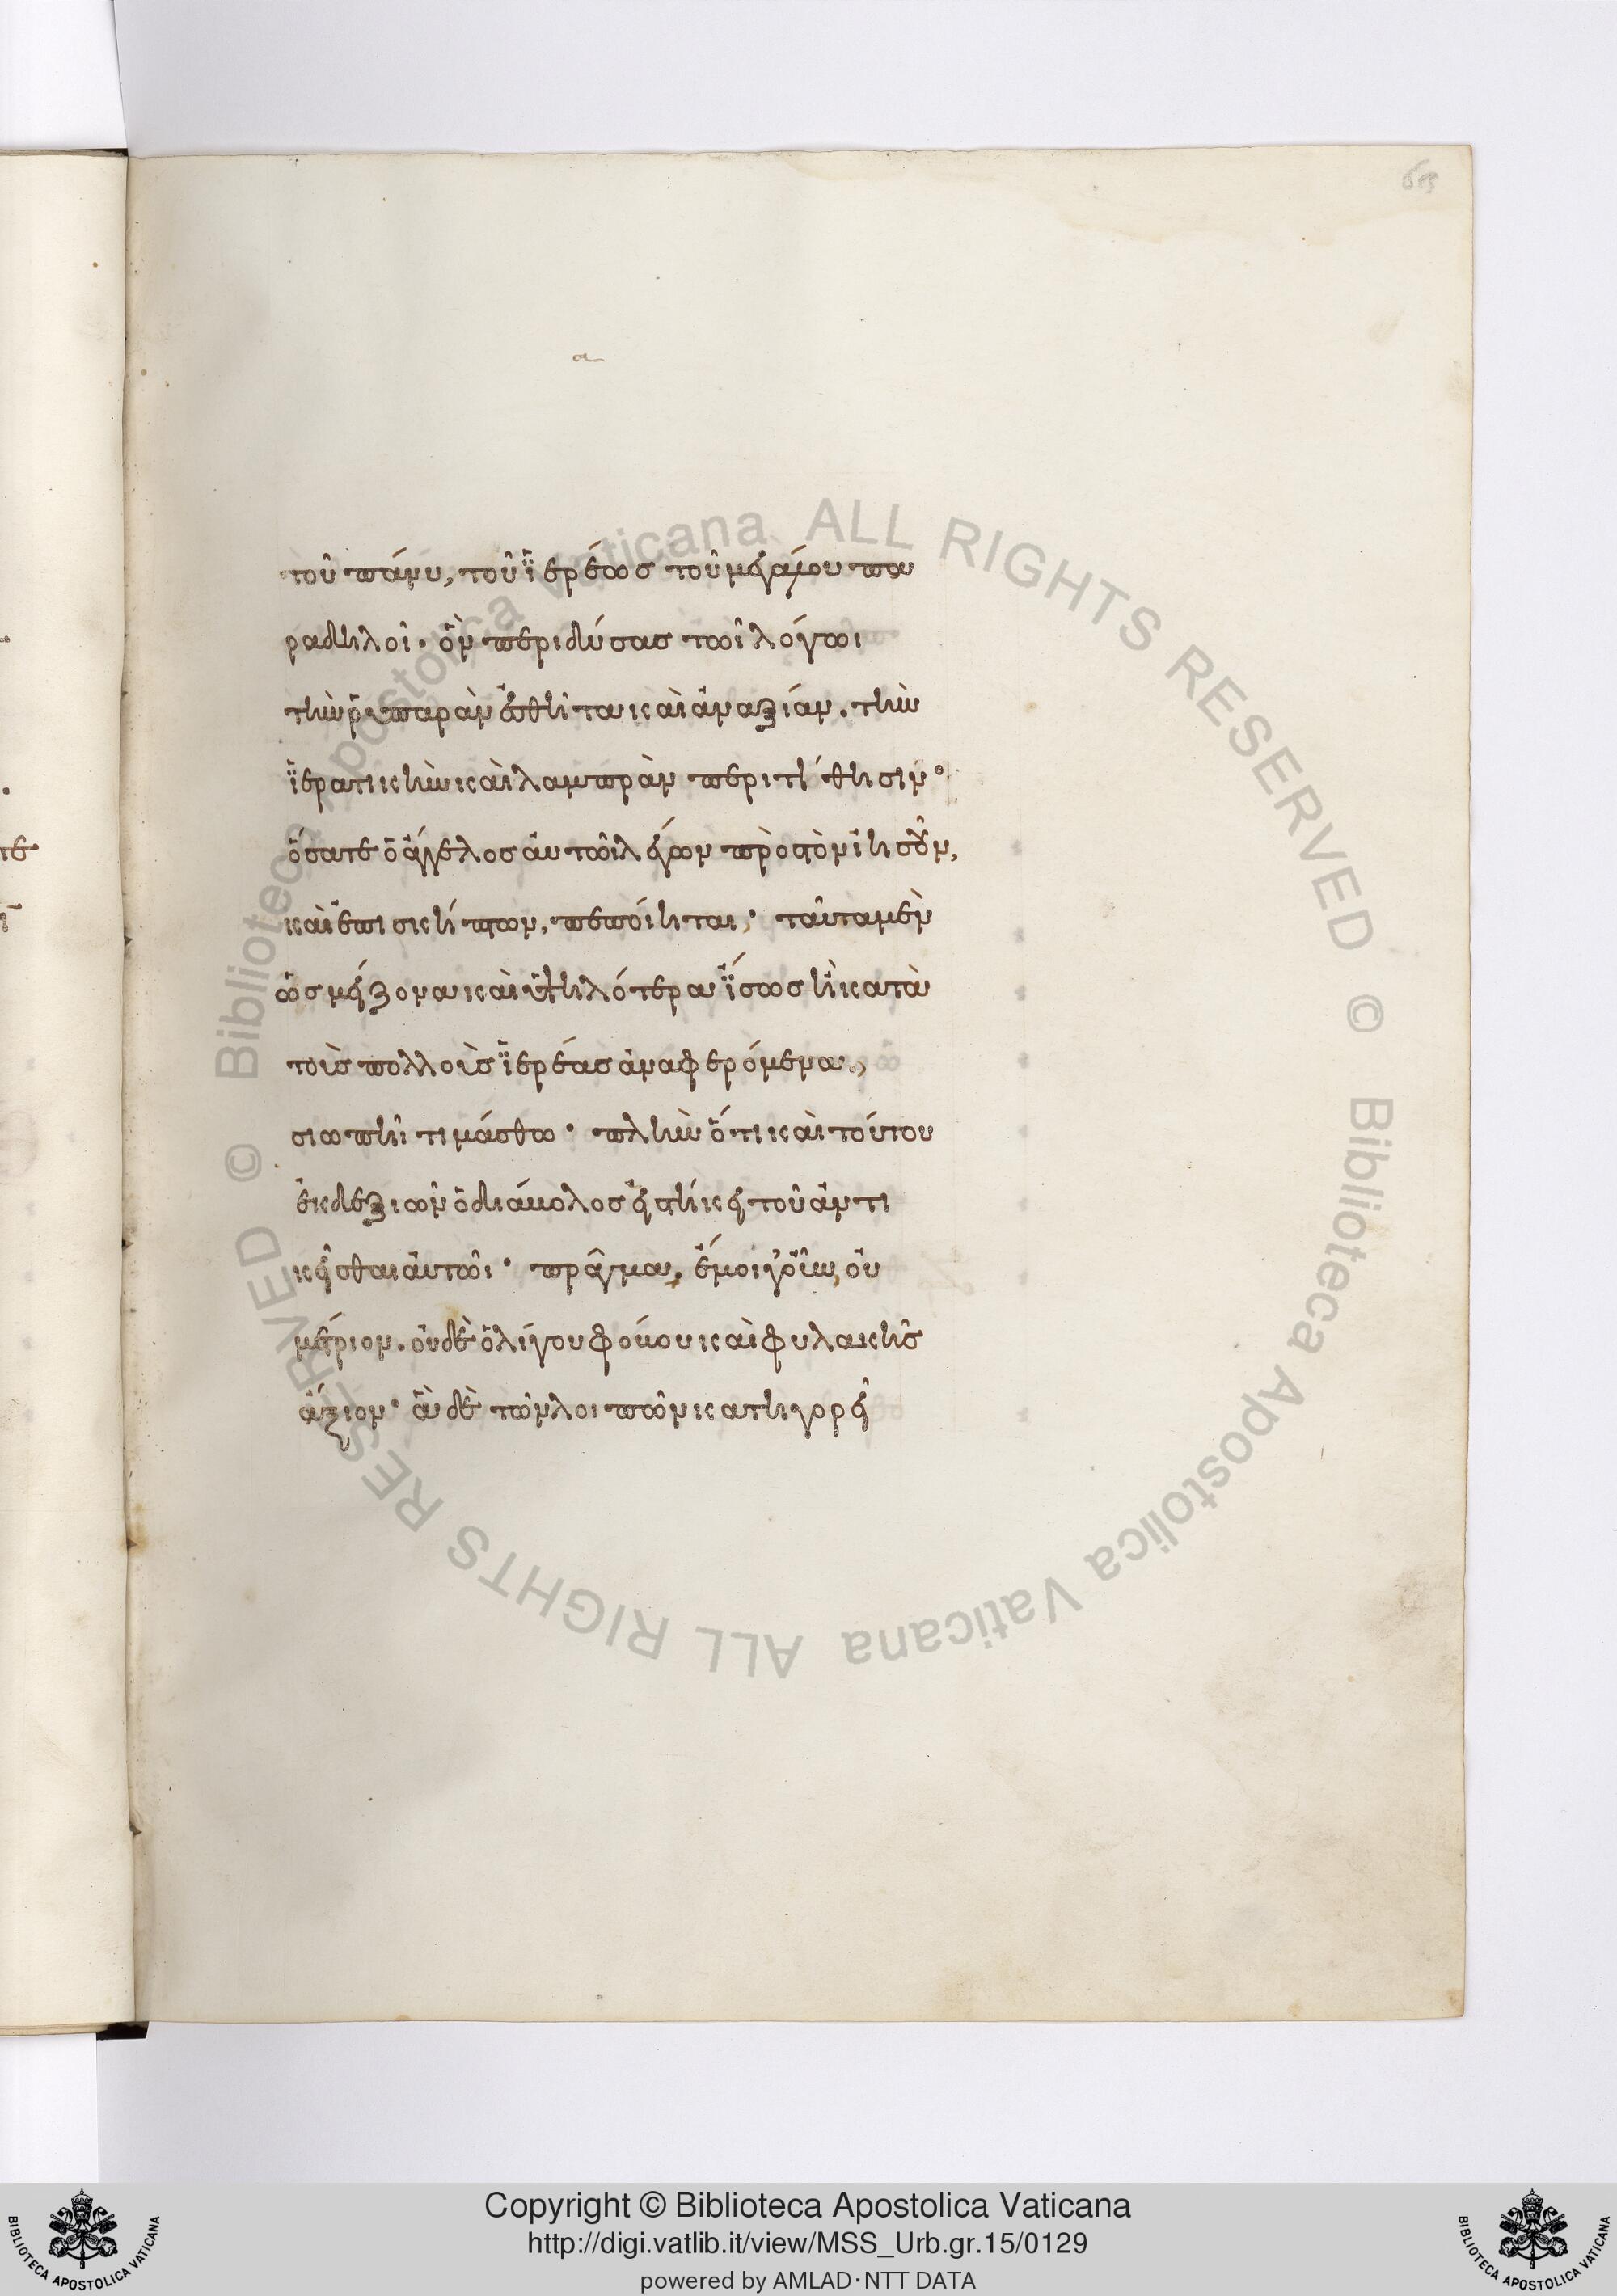 τοῦ πάνυ, τοῦ ἱερέως τοῦ μεγάλου πα
ραδηλοῖ· ὃν περιδύσας τῶι λόγωι
τὴν ῥυπαρὰν ἐσθῆτα καὶ ἀναξίαν. τὴν
ἱερατικὴν καὶ λαμπρὰν περιτίθησιν·
ὅσα τε ὁ ἄγγελος αὐτῶι λέγων πρὸς τὸν ἰησοῦν,
καὶ ἐπισκήπτων, πεποίηται· ταῦτα μὲν
ὡς μείζονα καὶ ὑψηλότερα ἴσως ἢ κατὰ
τοὺς πολλοὺς ἱερέας ἀναφερόμενα,
σιωπῆι τιμάσθω· πλὴν ὅτι καὶ τούτου
ἐκ δεξιῶν ὁ διάβολος εἱστήκει τοῦ ἀντι
κεῖσθαι αὐτῶι· πρᾶγμα, ἐμοὶ γοῦν, οὐ
μέτριον. οὐδὲ ὀλίγου φόβου καὶ φυλακῆς
ἄξιον·
Copyright © Biblioteca Apostolica Vaticana
http://digi.vatlib.it/view/MSS_Urb.gr.15/0129
powered by AMLAD·NTT DATA
© Biblioteca Apostolica Vaticana ALL RIGHTS RESERVED © Biblioteca Apostolica Vaticana ALL RIGHTS RESERVED
BIBLIOTECA APOSTOLICA VATICANA
BIBLIOTECA APOSTOLICA VATICANA